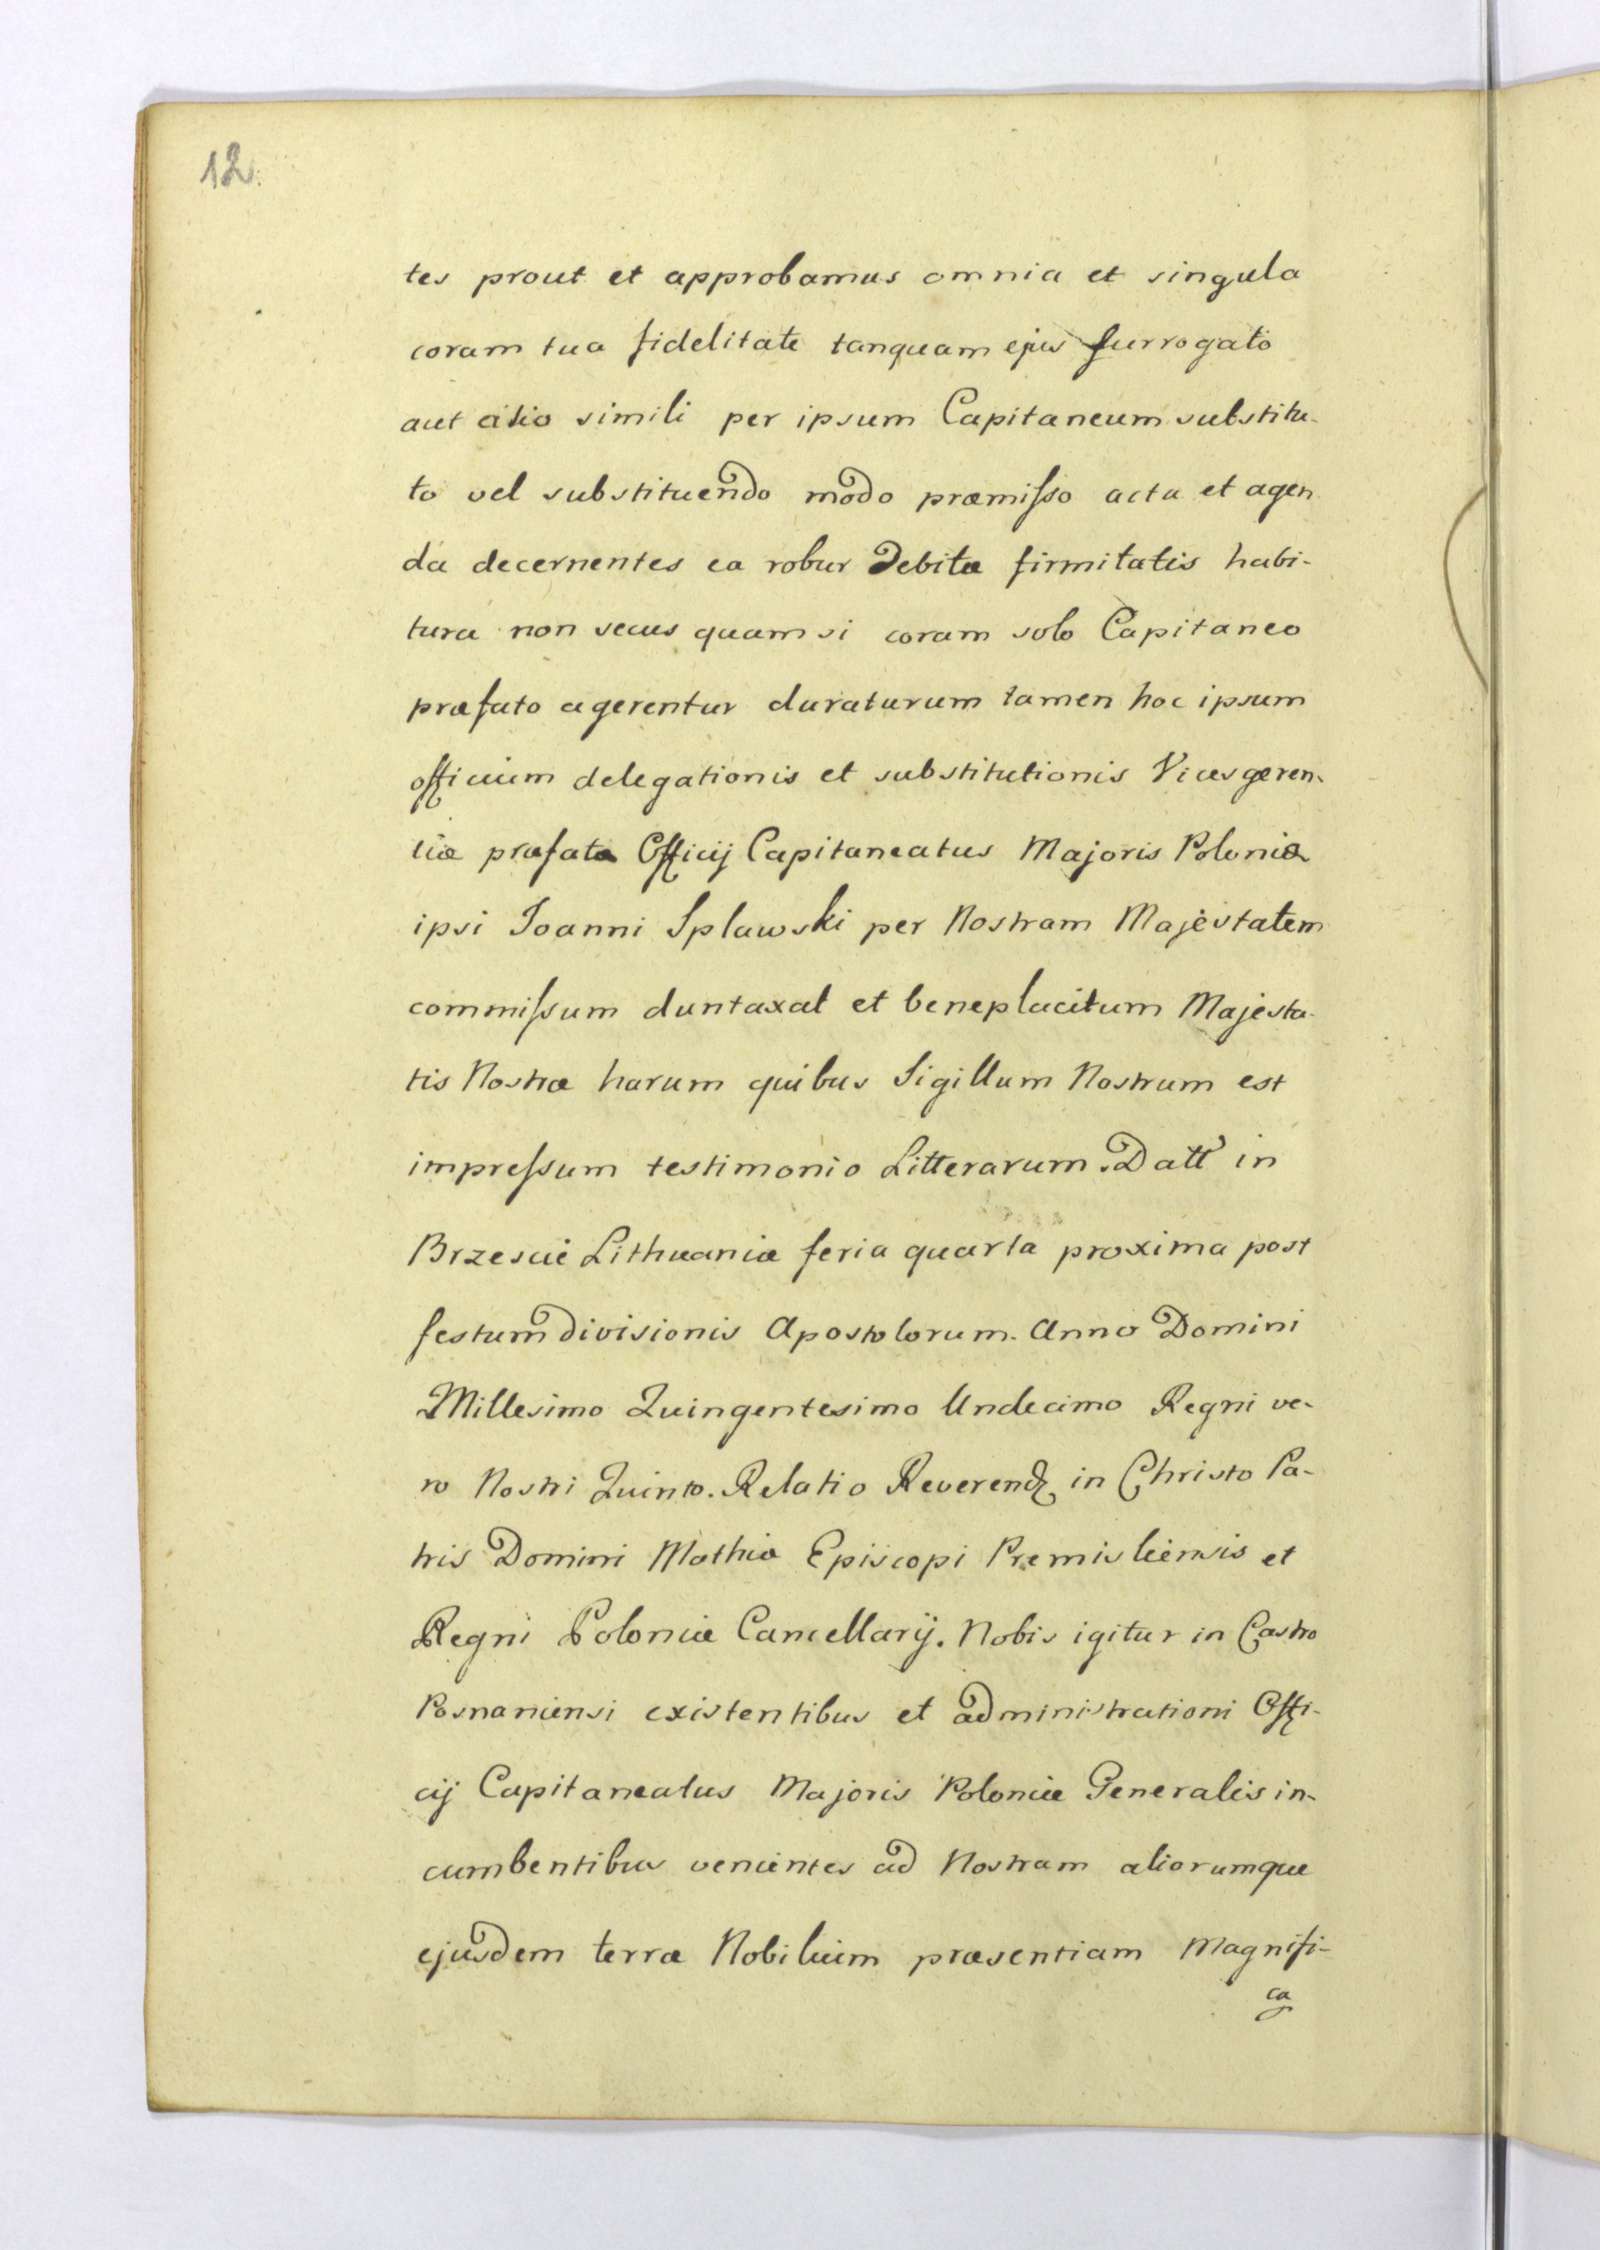 12.
tes prout et approbamus omnia et singula
coram tua fidelitate tanquam ejus surrogato
aut alio simili per ipsum Capitaneum substitu-
to vel substituendo modo præmiſso acta et agen
da decernentes ea robur debitæ firmitatis habi-
tura non secus quam si coram solo Capitaneo
præfato agerentur duraturum tamen hoc ipsum
officium delegationis et substitutionis Vicesgeren-
tiæ præfatæ Officij Capitaneatus Majoris Poloniæ
ipsi Joanni Splawski per Nostram Majestatem
commiſsum duntaxat et beneplacitum Majesta-
tis Nostræ harum quibus Sigillum Nostrum est
impreſsum testimonio Litterarum. Datt in
Brzescie Lithuaniæ feria quarta proxima post
festum divisionis Apostolorum. Anno Domini
Millesimo Quingentesimo Undecimo Regni ve-
ro Nostri Quinto. Relatio Reverend in Christo Pa-
tris Domini Mathiæ Episcopi Premisliensis et
Regni Poloniæ Cancellarij. Nobis igitur in Castro
Posnaniensi existentibus et administrationi Offi-
cij Capitaneatus Majoris Poloniæ Generalis in-
cumbentibus venientes ad Nostram aliorumque
ejusdem terræ Nobilium præsentiam Magnifi-
ca